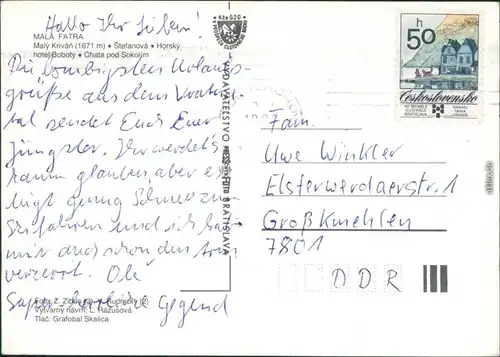 Hallo Ihr Lieben!
MALÁ FATRA
Malý Kriváň (1671 m) • Štefanová • Horský
hotel Boboty • Chata pod Sokolím
Die sonnigsten Urlaubs-
grüße aus dem Vratna-
tal sendet Euch Euer
Jüngster. Ihr werdet's
kaum glauben, aber es
liegt genug Schnee zum
Skifahren und ich hab
mir auch schon den Arm
verzerrt. Olé
Super herrliche Gegend
Foto: Z.
Výtvarný návrh: L. Rázusová
Tlač: Grafobal Skalica
Kčs 0,20
BRATISLAVA
50 h
Československo
Fam.
Uwe Winkler
Elsterwerdaerstr. 1
Großkmehlen
7801
DDR